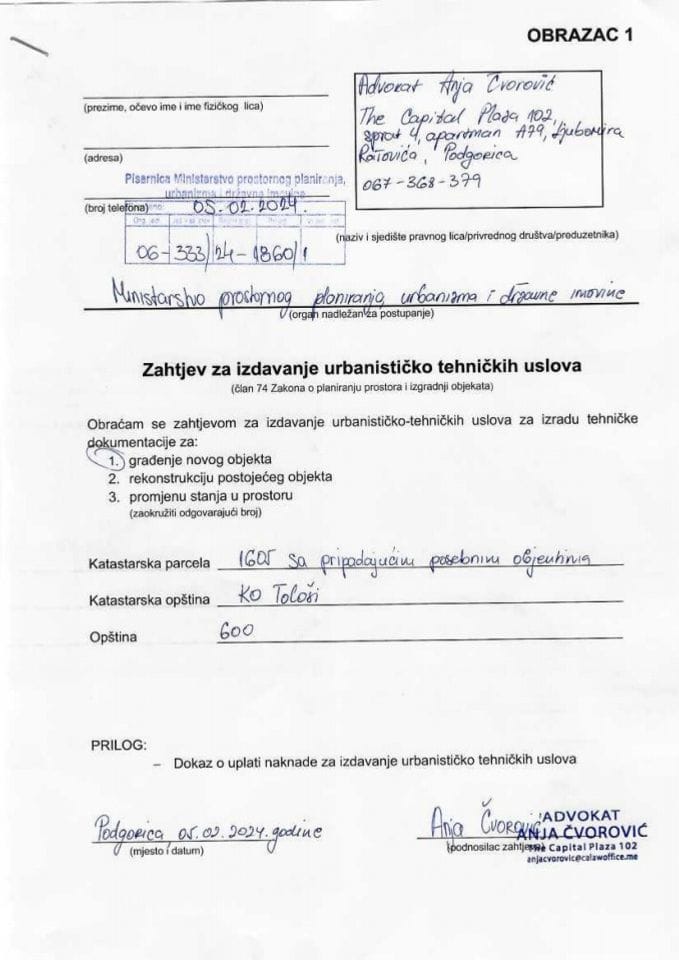 OBRAZAC 1
(prezime, očevo ime i ime fizičkog lica)
(adresa)
(broj telefona)
Advokat Anja Čvorović
The Capital Plaza 102,
sprat 4, apartman A79, Ljubomira
Radovića, Podgorica
067-368-379
(naziv i sjedište pravnog lica/privrednog društva/preduzetnika)
Pisarnica Ministarstvo prostornog planiranja,
urbanizma i državne imovine
05.02.2024.
06-333/24-1860/1
Ministarstvo prostornog planiranja, urbanizma i državne imovine
(organ nadležan za postupanje)
Zahtjev za izdavanje urbanističko tehničkih uslova
(član 74 Zakona o planiranju prostora i izgradnji objekata)
Obraćam se zahtjevom za izdavanje urbanističko-tehničkih uslova za izradu tehničke
dokumentacije za:
1. građenje novog objekta
2. rekonstrukciju postojećeg objekta
3. promjenu stanja u prostoru
(zaokružiti odgovarajući broj)
Katastarska parcela 1605 sa pripadajućim posebnim objektima
Katastarska opština KO Tološi
Opština 600
PRILOG:
– Dokaz o uplati naknade za izdavanje urbanističko tehničkih uslova
Podgorica 05.02.2024. godine
(mjesto i datum)
Anja Čvorović
(podnosilac zahtjeva)
ADVOKAT
ANJA ČVOROVIĆ
The Capital Plaza 102
anjacvorovic@calawoffice.me